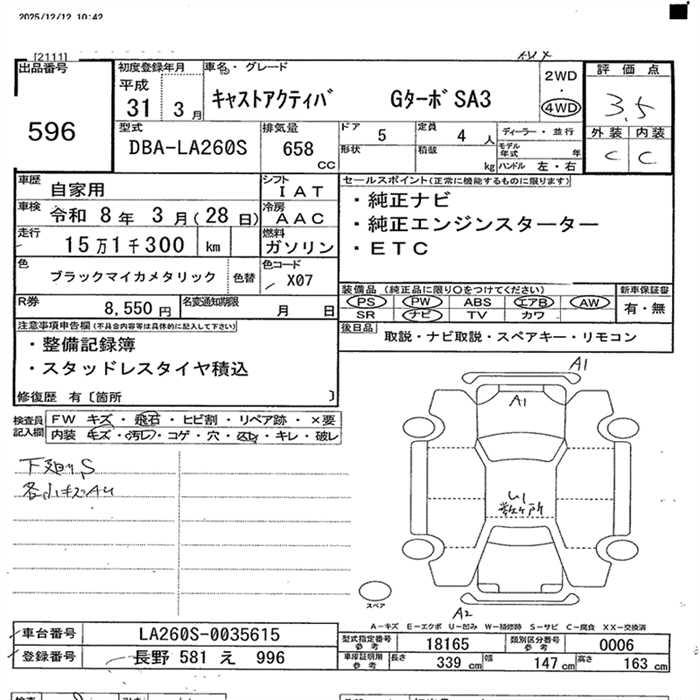 2025/12/12 10:42
[2111]
出品番号
596
初度登録年月
平成
31 3月
車名・グレード
キャストアクティバ GターボSA3
2WD
・
4WD
評価点
3.5
外装 内装
C C
型式
DBA-LA260S
排気量
658
CC
ドア
5
形状
定員
4人
積載
kg
ディーラー・並行
モデル年式 年
ハンドル 左・右
車歴
自家用
車検
令和 8年 3月(28日)
走行
15万1千300 km
シフト
IAT
冷房
AAC
燃料
ガソリン
色
ブラックマイカメタリック
色替
色コード
X07
R券
8,550円
名変通知期限
月 日
セールスポイント(正常に機能するものに限ります)
・純正ナビ
・純正エンジンスターター
・ETC
装備品(純正品に限り○をつけてください)
PS PW ABS エアB AW
SR ナビ TV カワ
新車保証書
有・無
後日品
取説・ナビ取説・スペアキー・リモコン
注意事項申告欄(不具合内容等は具体的に記入して下さい)
・整備記録簿
・スタッドレスタイヤ積込
修復歴 有〔箇所 〕
検査員記入欄
FW キズ・飛石・ヒビ割・リペア跡・×要
内装 キズ・汚レ・コゲ・穴・凶・キレ・破レ
A1
A1
U1
数ヶ所
A2
スペア
A-キズ E-エクボ U-凹み W-補修跡 S-サビ C-腐食 XX-交換済
車台番号
LA260S-0035615
登録番号
長野 581 え 996
型式指定番号
参考
18165
類別区分番号
参考
0006
車庫証明用
参考
長さ 339 cm
幅 147 cm
高さ 163 cm